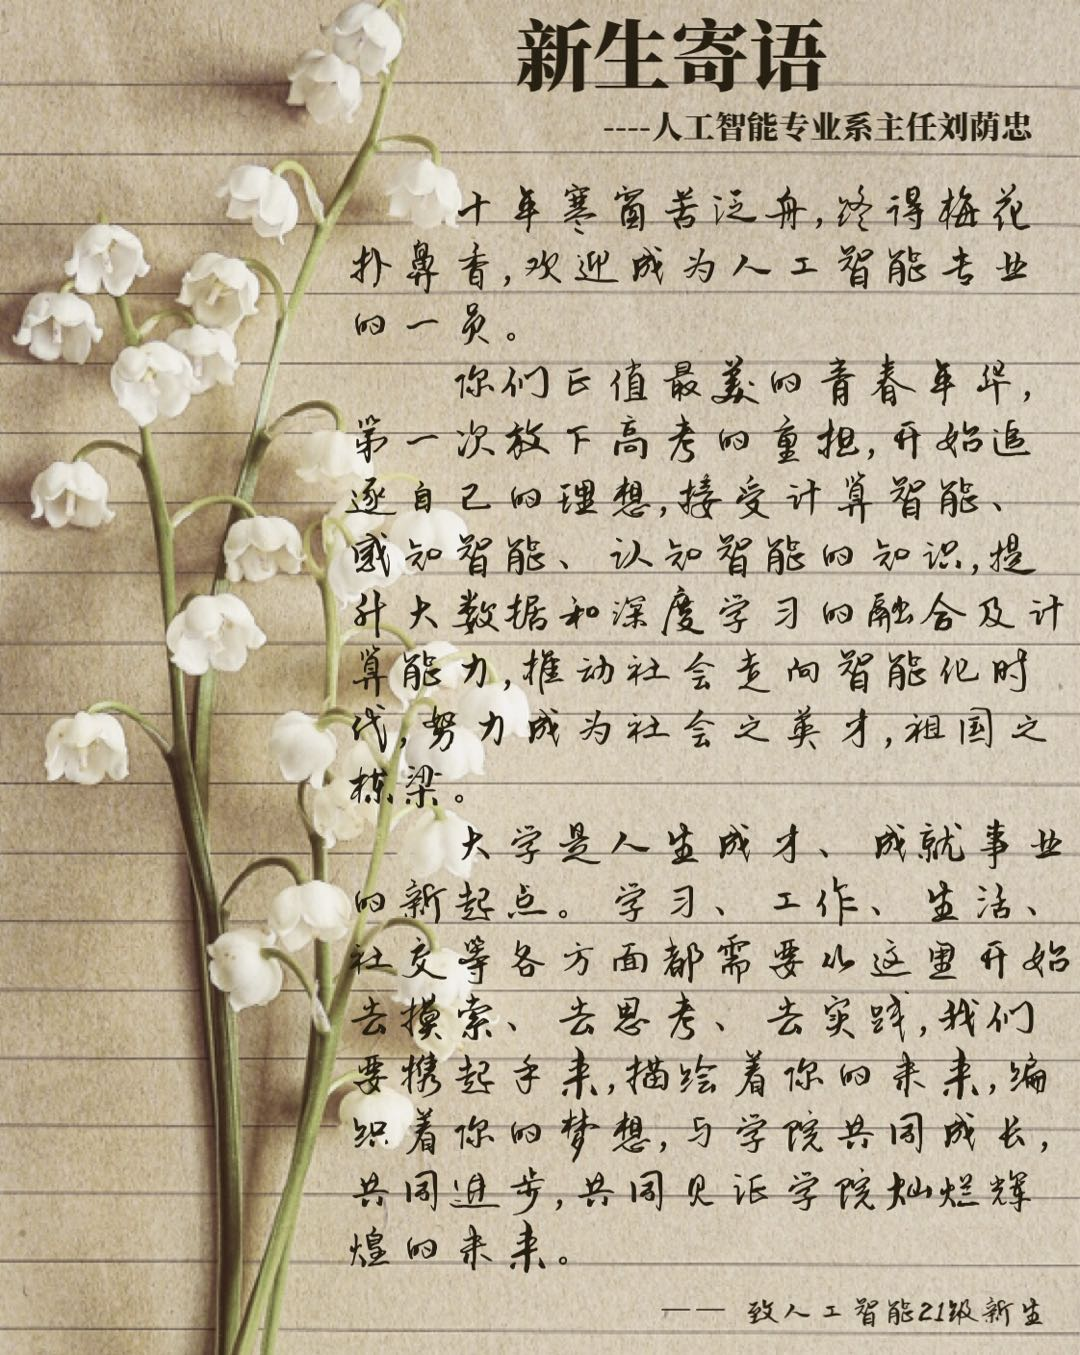 新生寄语
----人工智能专业系主任刘荫忠
十年寒窗苦泛舟,终得梅花
扑鼻香,欢迎成为人工智能专业
的一员。
你们正值最美的青春年华,
第一次放下高考的重担,开始追
逐自己的理想,接受计算智能、
感知智能、认知智能的知识,提
升大数据和深度学习的融合及计
算能力,推动社会走向智能化时
代,努力成为社会之英才,祖国之
栋梁。
大学是人生成才、成就事业
的新起点。学习、工作、生活、
社交等各方面都需要从这里开始
去摸索、去思考、去实践,我们
要携起手来,描绘着你的未来,编
织着你的梦想,与学院共同成长,
共同进步,共同见证学院灿烂辉
煌的未来。
—— 致人工智能21级新生